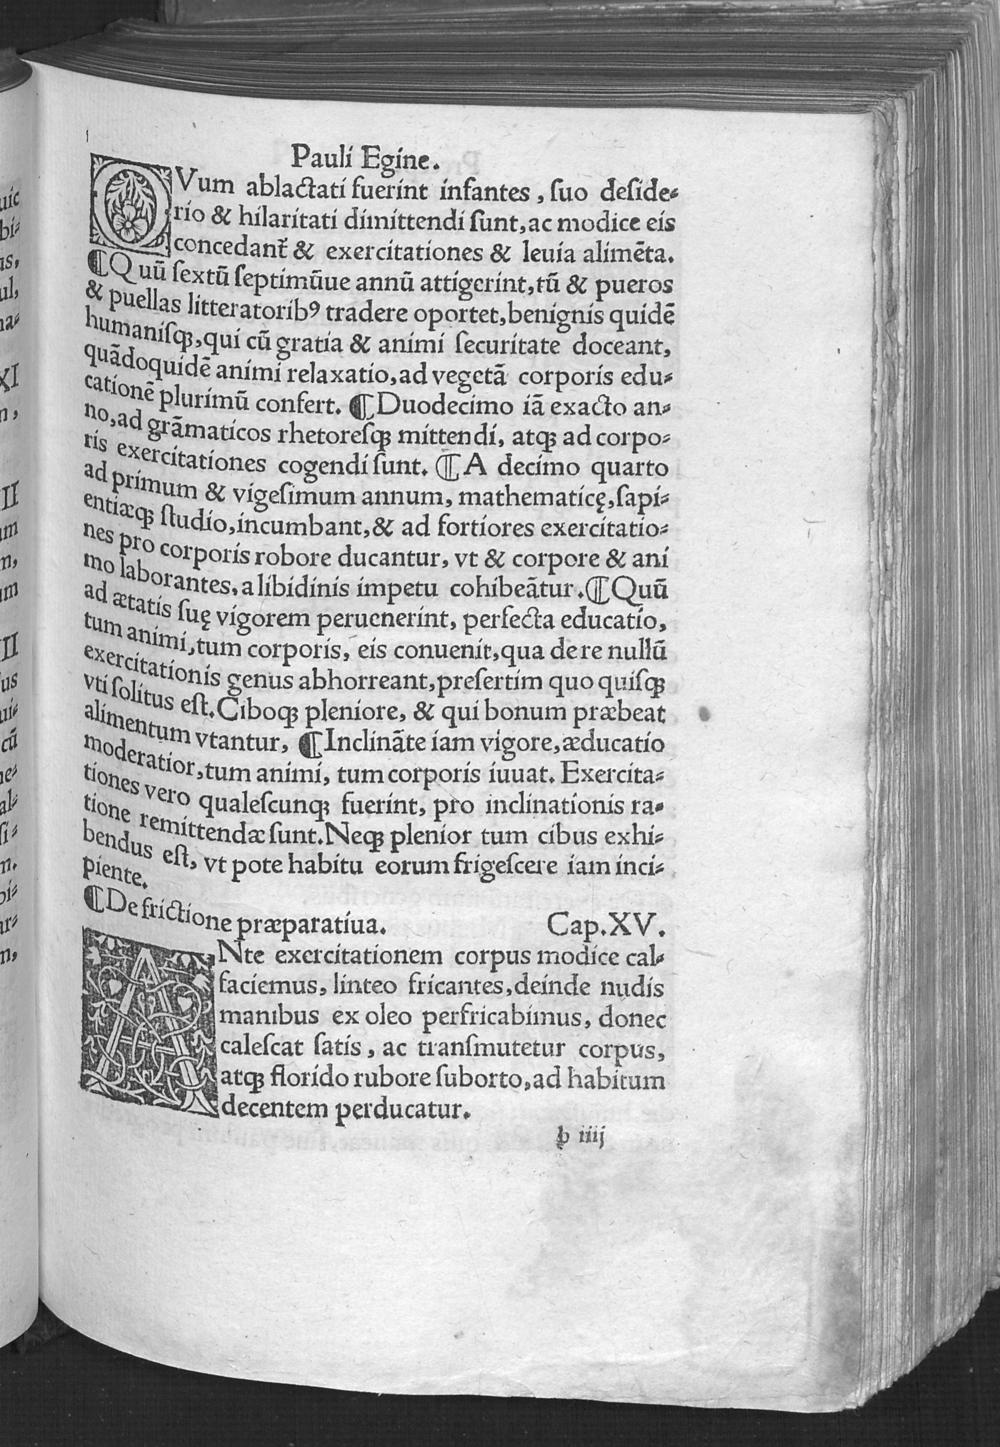 Pauli Egine.
QVum ablactati fuerint infantes, ſuo deſide⸗
rio & hilaritati dimittendi ſunt, ac modice eis
concedant᷑ & exercitationes & leuia alimēta.
¶Quū ſextū ſeptimūue annū attigerint, tū & pueros
& puellas litteratorib⁹ tradere oportet, benignis quidē
humaniſqꝫ, qui cū gratia & animi ſecuritate doceant,
quādoquidē animi relaxatio, ad vegetā corporis edu⸗
cationē plurimū confert. ¶Duodecimo iā exacto an⸗
no, ad grāmaticos rhetoreſqꝫ mittendi, atqꝫ ad corpo⸗
ris exercitationes cogendi ſunt. ¶A decimo quarto
ad primum & vigeſimum annum, mathematicę, ſapi⸗
entiæqꝫ ſtudio, incumbant, & ad fortiores exercitatio⸗
nes pro corporis robore ducantur, vt & corpore & ani
mo laborantes, a libidinis impetu cohibeātur. ¶Quū
ad ætatis ſuę vigorem peruenerint, perfecta educatio,
tum animi, tum corporis, eis conuenit, qua de re nullū
exercitationis genus abhorreant, preſertim quo quiſqꝫ
vti ſolitus eſt. Ciboqꝫ pleniore, & qui bonum præbeat
alimentum vtantur, ¶Inclināte iam vigore, æducatio
moderatior, tum animi, tum corporis iuuat. Exercita⸗
tiones vero qualeſcunqꝫ fuerint, pro inclinationis ra⸗
tione remittendæ ſunt. Neqꝫ plenior tum cibus exhi⸗
bendus eſt, vt pote habitu eorum frigeſcere iam inci⸗
piente.
¶De frictione præparatiua. Cap.XV.
ANte exercitationem corpus modice cal⸗
faciemus, linteo fricantes, deinde nudis
manibus ex oleo perfricabimus, donec
caleſcat ſatis, ac tranſmutetur corpus,
atqꝫ florido rubore ſuborto, ad habitum
decentem perducatur.
b iiij